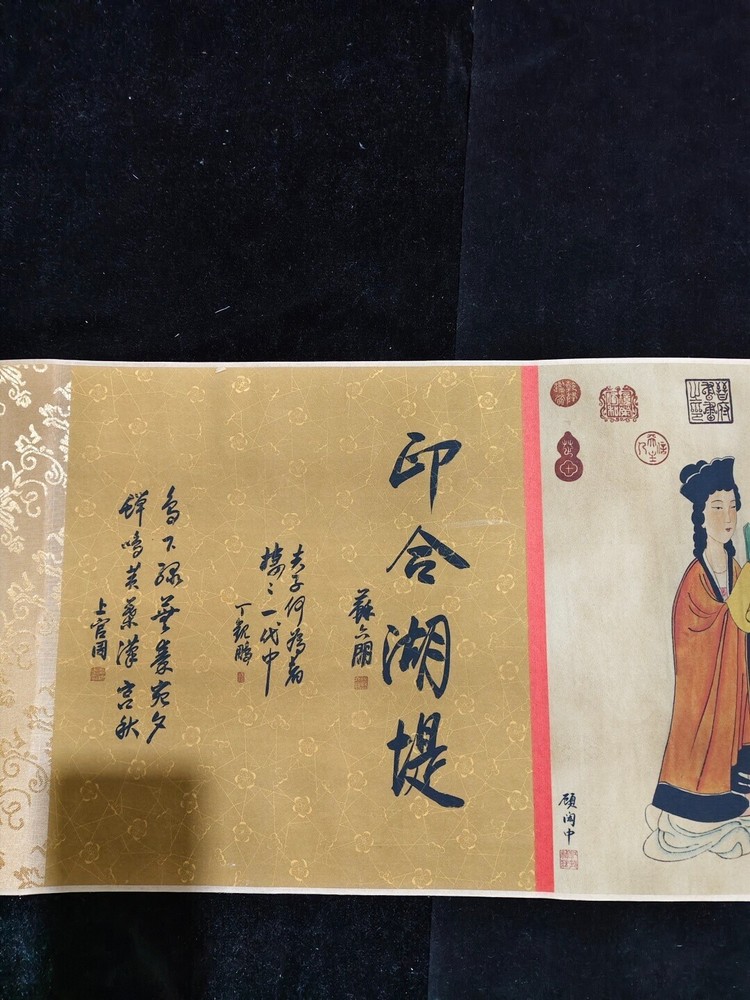 晉府
書畫
之印
顧閎中
印合湖堤
蘇六朋
夫子何為者
棲〻一代中
丁觀鵬
鳥下綠蕪秦苑夕
蟬鳴黃葉漢宮秋
上官周